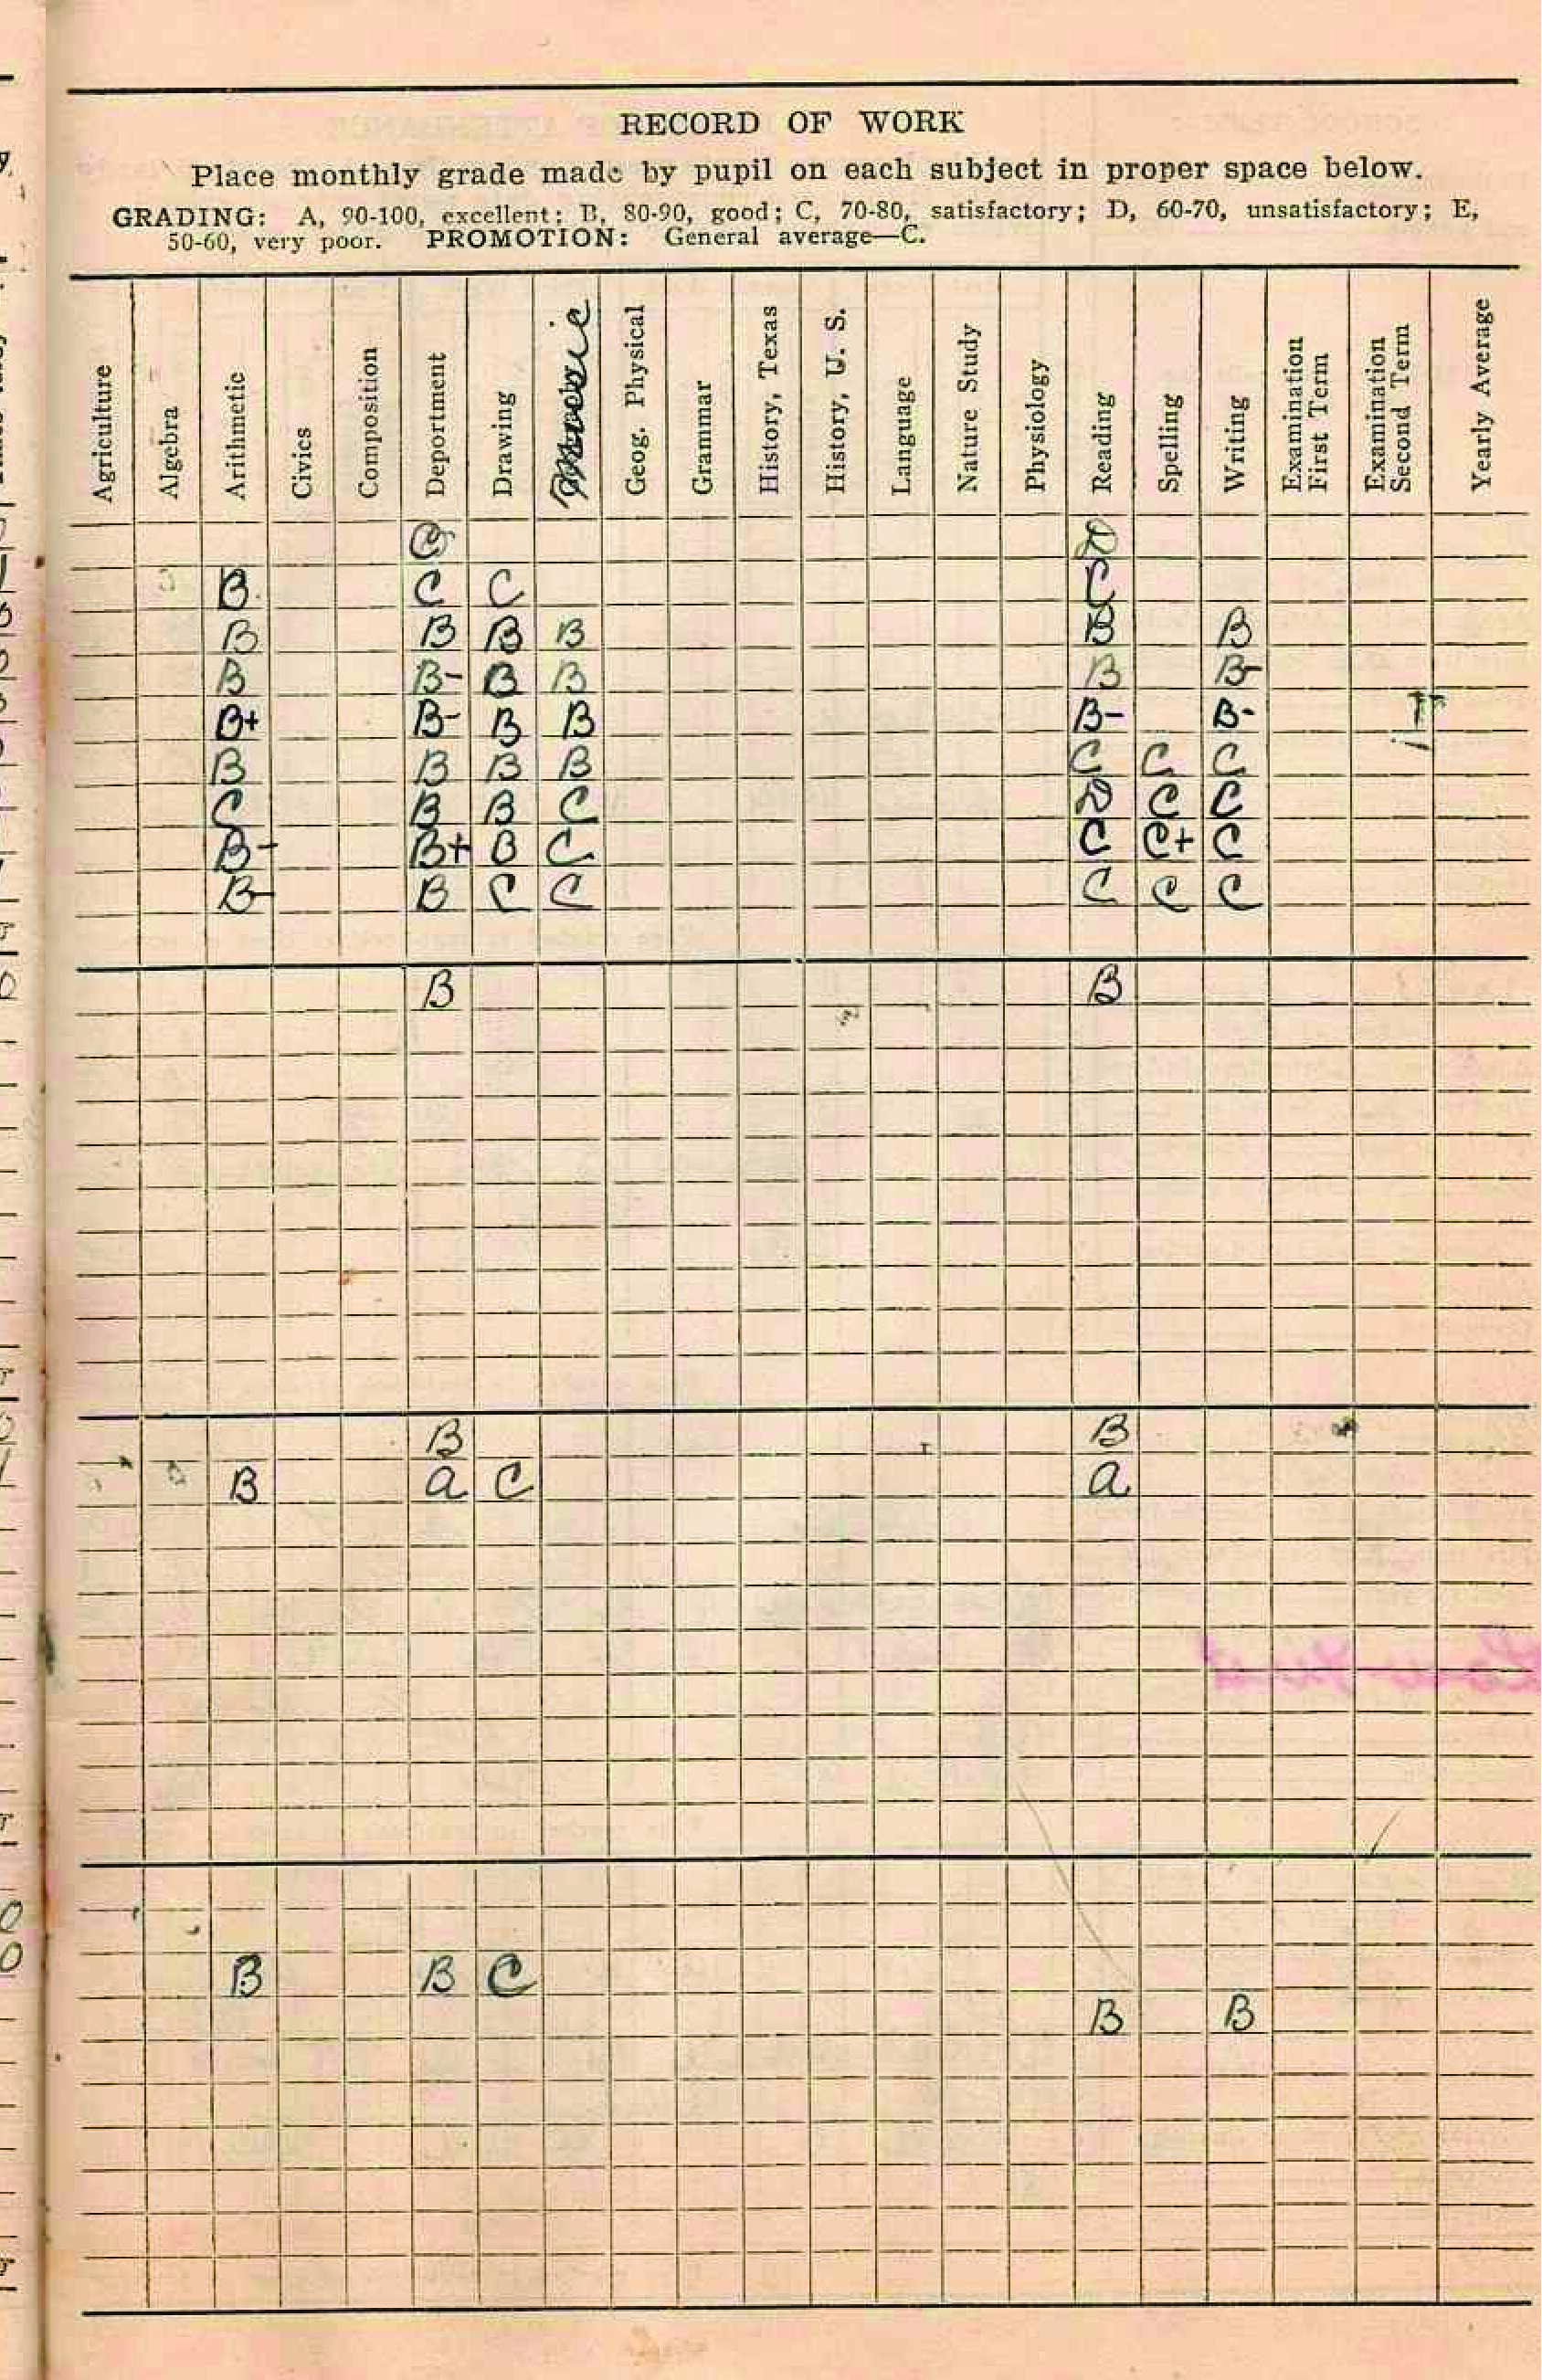 RECORD OF WORK
Place monthly grade made by pupil on each subject in proper space below.
GRADING: A, 90-100, excellent; B, 80-90, good; C, 70-80, satisfactory; D, 60-70, unsatisfactory; E,
50-60, very poor. PROMOTION: General average—C.
Agriculture
Algebra
Arithmetic
Civics
Composition
Deportment
Drawing
Music
Geog. Physical
Grammar
History, Texas
History, U. S.
Language
Nature Study
Physiology
Reading
Spelling
Writing
Examination
First Term
Examination
Second Term
Yearly Average
C D
B C C C
B B B B B B
B B- B B B B-
B+ B- B B B- B-
B B B B C C C
C B B C D C C
B- B+ B C C C+ C
B- B C C C C C
B B
B B
B a C a
B B C
B B